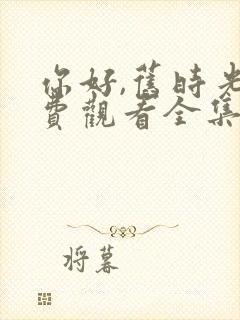 你好,舊時光
費觀看全集
將暮